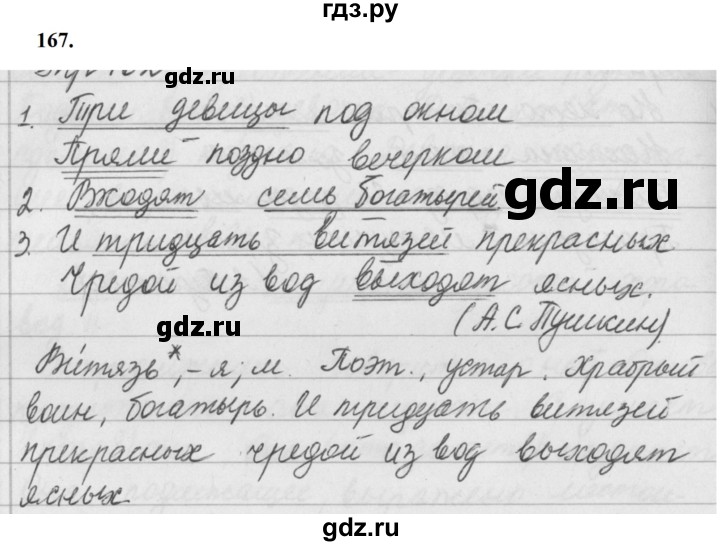 гдз.ру
167.
gdz.ru
1. Три девицы под окном
Пряли поздно вечерком
2. Входят семь богатырей
gdz.ru
3. И тридцать витязей прекрасных
Чредой из вод выходят ясных.
(А.С Пушкин)
gdz.ru
Ви́тязь*, -я, м. Поэт., устар. Храбрый
воин, богатырь. И тридцать витязей
прекрасных чредой из вод выходят
ясных
gdz.ru